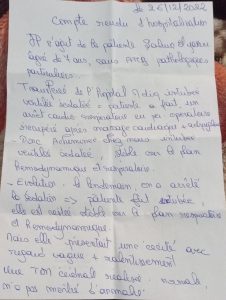 Le 26/12/2022
Compte rendu d'hospitalisation
Il s'agit de la patiente
âgée de 7 ans, sans ATCD pathologiques
particuliers.
Transférée de l'hôpital intubée
ventilée sédatée : patiente a fait, un
arrêt cardio respiratoire en per opératoire
récupéré après massage cardiaque + adrénaline
- Donc Acheminée chez nous intubée
ventilée sédatée, stable sur le plan
hémodynamique et respiratoire.
- Evolution : le lendemain, on a arrêté
la sédation => patiente fut extubée,
elle est restée stable sur le plan respiratoire
et Hémodynamique.
Mais elle présentait une cécité avec
regard vague + ralentissement
Une TDM cérébrale réalisée : normale,
n'a pas montré d'anomalie.